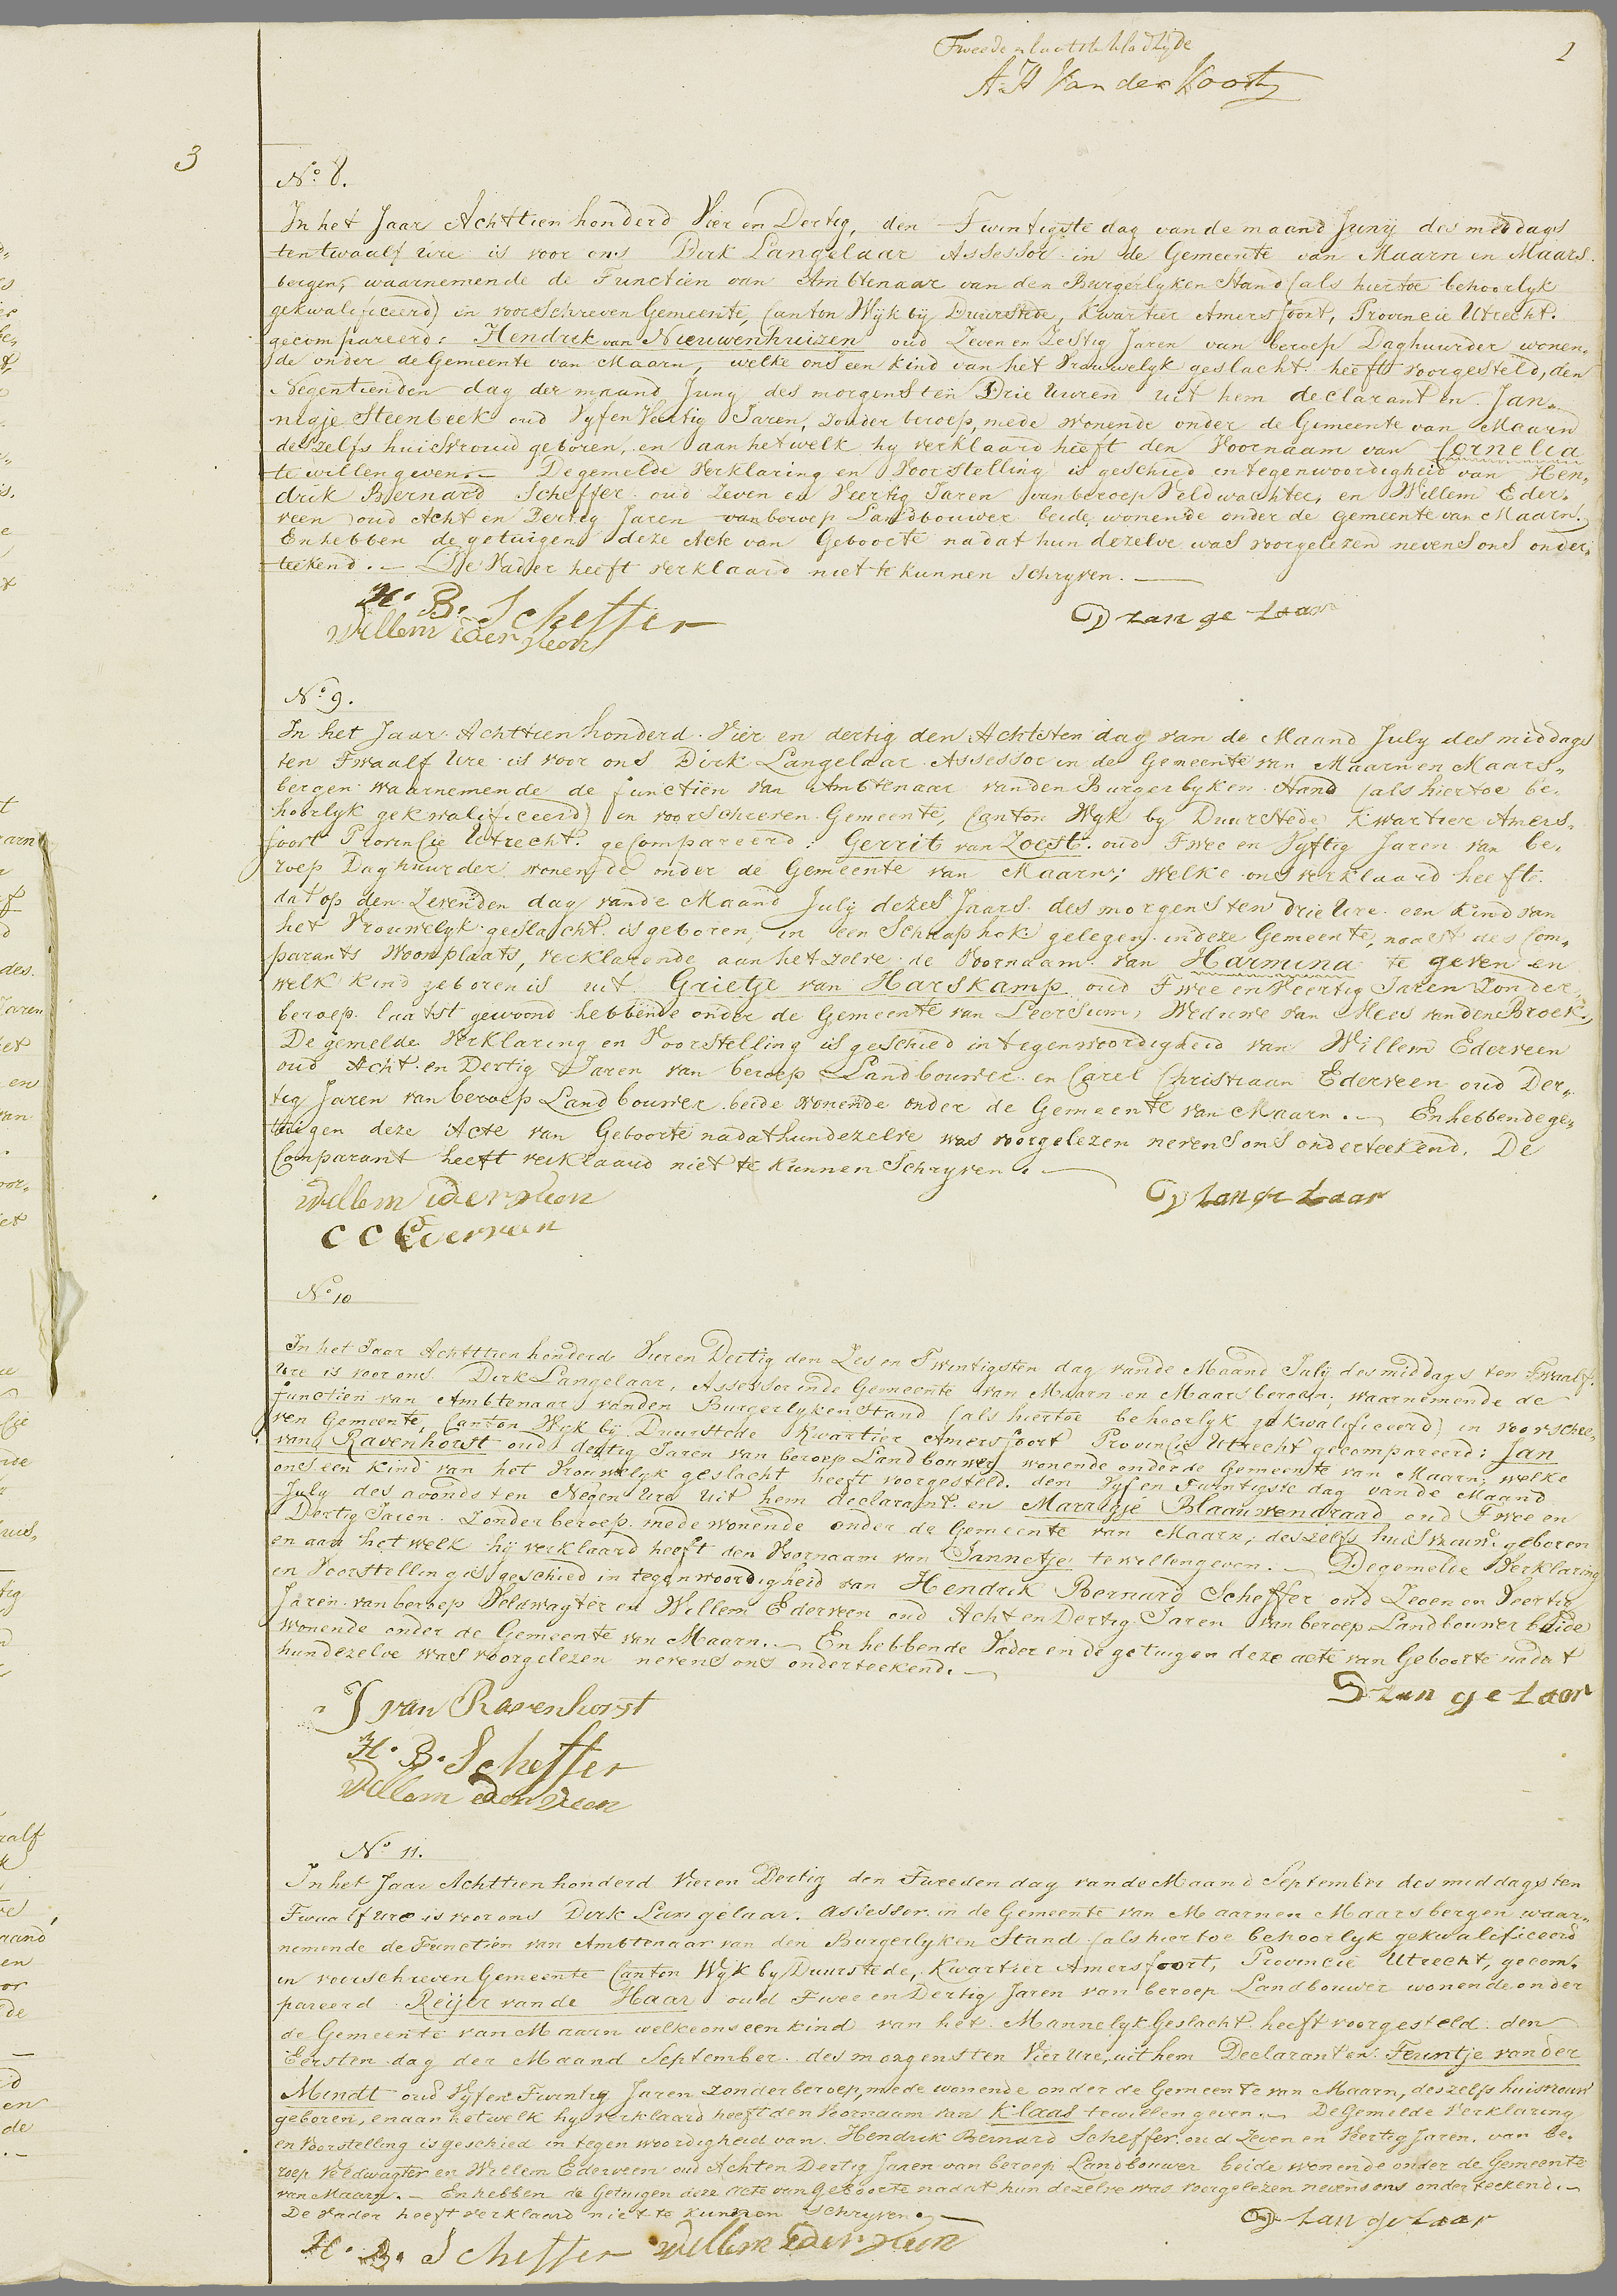 Tweede en laatste bladzijde
2
A: H Van der Voort
3
No. 8.
In het Jaar Achttien honderd Vier en Dertig, den Twintigste dag van de maand Junÿ des middags
ten twaalf ure is voor ons Dirk Langelaar Assessor in de Gemeente van Maarn en Maars-
bergen, waarnemende de Functien van Ambtenaar van den Burgerlyken Stand (als hiertoe behoorlyk
gekwalificeerd) in voorschreven Gemeente, Canton Wijk bij Duurstede, Kwartier Amersfoort, Provincie Utrecht.
gecompareerd: Hendrik van Nieuwenhuizen oud Zeven en Zestig Jaren van beroep Daghuurder wonen,
de onder de Gemeente van Maarn, welke ons een kind van het Vrouwelyk geslacht heeft voorgesteld, den
Negentienden dag der maand Juny des morgens ten Drie Uuren uit hem declarant en Jan-
nigje Steenbeek oud Vyf en Veertig Jaren, zonder beroep, mede wonende onder de Gemeente van Maarn
deszelfs huisvrouw geboren, en aan hetwelk hy verklaard heeft den Voornaam van Cornelia
te willen geven. – De gemelde Verklaring en Voorstelling is geschied in tegenwoordigheid van Hen,
drik Bernard Scheffer oud Zeven en Veertig Jaren van beroep Veldwachter, en Willem Eder,
veen oud Acht en Dertig Jaren van beroep Landbouwer beide wonende onder de gemeente van Maarn.
En hebben de getuigen deze Acte van Geboorte na dat hun dezelve was voorgelezen nevens ons onder,
teekend. – De Vader heeft verklaard niet te kunnen schryven. –
H. B. Scheffer
D Langelaar
Willem Ederveen
No. 9.
In het Jaar Achttien honderd Vier en dertig den Achtsten dag van de Maand July des middags
ten Twaalf Ure is voor ons Dirk Langelaar Assessor in de Gemeente van Maarn en Maars,,
bergen waarnemende de functiën van Ambtenaar van den Burgerlyken Stand (als hiertoe be,
hoorlyk gekwalificeerd) in voorschreven Gemeente, Canton Wyk by Duurstede Kwartier Amers,
foort Provincie Utrecht. gecompareerd: Gerrit van Zoest. oud Twee en Vyftig Jaren van be,
roep Daghuurder wonende onder de Gemeente van Maarn; welke ons verklaard heeft
dat op den Zevenden dag van de Maand July dezes Jaars des morgens ten drie Ure een kind van
het Vrouwelyk geslacht is geboren, in een Schaaphok gelegen in deze Gemeente, naast des Com,
parants Woonplaats, verklarende aan hetzelve de Voornaam van Harmina te geven en
welk kind geboren is uit Grietje van Harskamp oud Twee en Veertig Jaren Zonder
beroep. laatst gewoond hebbende onder de Gemeente van Leersum, Weduwe van Mees van den Broek.,
De gemelde Verklaring en Voorstelling is geschied in tegenwoordigheid van Willem Ederveen
oud Acht en Dertig Jaren van beroep Landbouwer en Carel Christiaan Ederveen oud Der,,
tig Jaren van beroep Landbouwer beide wonende onder de Gemeente van Maarn. – En hebben de ge,
tuigen deze Acte van Geboorte na dat hun dezelve was voorgelezen nevens ons onderteekend. De
Comparant heeft verklaard niet te kunnen Schryven. –
Willem Ederveen
D Langelaar
C C Ederveen
No. 10
In het Jaar Achttien honderd Vier en Dertig den Zes en Twintigsten dag van de Maand July des middags ten Twaalf
Ure is voor ons Dirk Langelaar, Assessor in de Gemeente van Maarn en Maarsbergen, waarnemende de
functien van Ambtenaar van den Burgerlyken Stand (als hiertoe behoorlyk gekwalificeerd) in voorschre,
ven Gemeente, Canton Wyk bij Duurstede Kwartier Amersfoort Provincie Utrecht gecompareerd: Jan
van Ravenhorst oud dertig Jaren van beroep Landbouwer wonende onder de Gemeente van Maarn, welke
ons een kind van het Vrouwelyk geslacht heeft voorgesteld. den Vyf en Twintigste dag van de Maand
July des avonds ten Negen Ure uit hem declarant en Marrigje Blaauwendraad oud Twee en
Dertig Jaren. Zonder beroep. mede wonende onder de Gemeente van Maarn, deszelfs huisvrouw geboren
en aan het welk hij verklaard heeft den Voornaam van Jannetje te willen geven. – De gemelde Verklaring
en Voorstelling is geschied in tegenwoordigheid van Hendrik Bernard Scheffer oud Zeven en Veertig
Jaren van beroep Veldwagter en Willem Ederveen oud Acht en Dertig Jaren van beroep Landbouwer beide
wonende onder de Gemeente van Maarn. – En hebben de Vader en de getuigen deze acte van Geboorte nadat
hun dezelve was voorgelezen nevens ons onderteekend. –
D Langelaar
J van Ravenhorst
H. B. Scheffer
Willem Ederveen
No. 11.
In het Jaar Achttien honderd Vier en Dertig den Tweeden dag van de Maand September des middags ten
Twaalf Ure is voor ons Dirk Langelaar. Assessor in de Gemeente van Maarn en Maarsbergen waar,,
nemende de Functiën van Ambtenaar van den Burgerlyken Stand (als hiertoe behoorlyk gekwalificeerd
in voorschreven Gemeente Canton Wyk by Duurstede, Kwartier Amersfoort, Provincie Utrecht, gecom,
pareerd Reijer van de Haar oud Twee en Dertig Jaren van beroep Landbouwer wonende onder
de Gemeente van Maarn welke ons een kind van het Mannelyk Geslacht heeft voorgesteld den
Eersten dag der Maand September des morgens ten Vier Ure, uit hem Declarant en Teuntje van der
Mindt oud Vyf en Twintig Jaren zonder beroep, mede wonende onder de Gemeente van Maarn, deszelfs huisvrouw
geboren, en aan hetwelk hy verklaard heeft den Voornaam van Klaas te willen geven. – De Gemelde Verklaring
en Voorstelling is geschied in tegenwoordigheid van Hendrik Bernard Scheffer oud Zeven en Veertig Jaren, van be,
roep Veldwagter en Willem Ederveen oud Acht en Dertig Jaren van beroep Landbouwer beide wonende onder de Gemeente
van Maarn. – En hebben de Getuigen deze Acte van Geboorte nadat hun dezelve was voorgelezen nevens ons onderteekend. –
De Vader heeft verklaard niet te kunnen schryven. –
D Langelaar
H. B. Scheffer Willem Ederveen